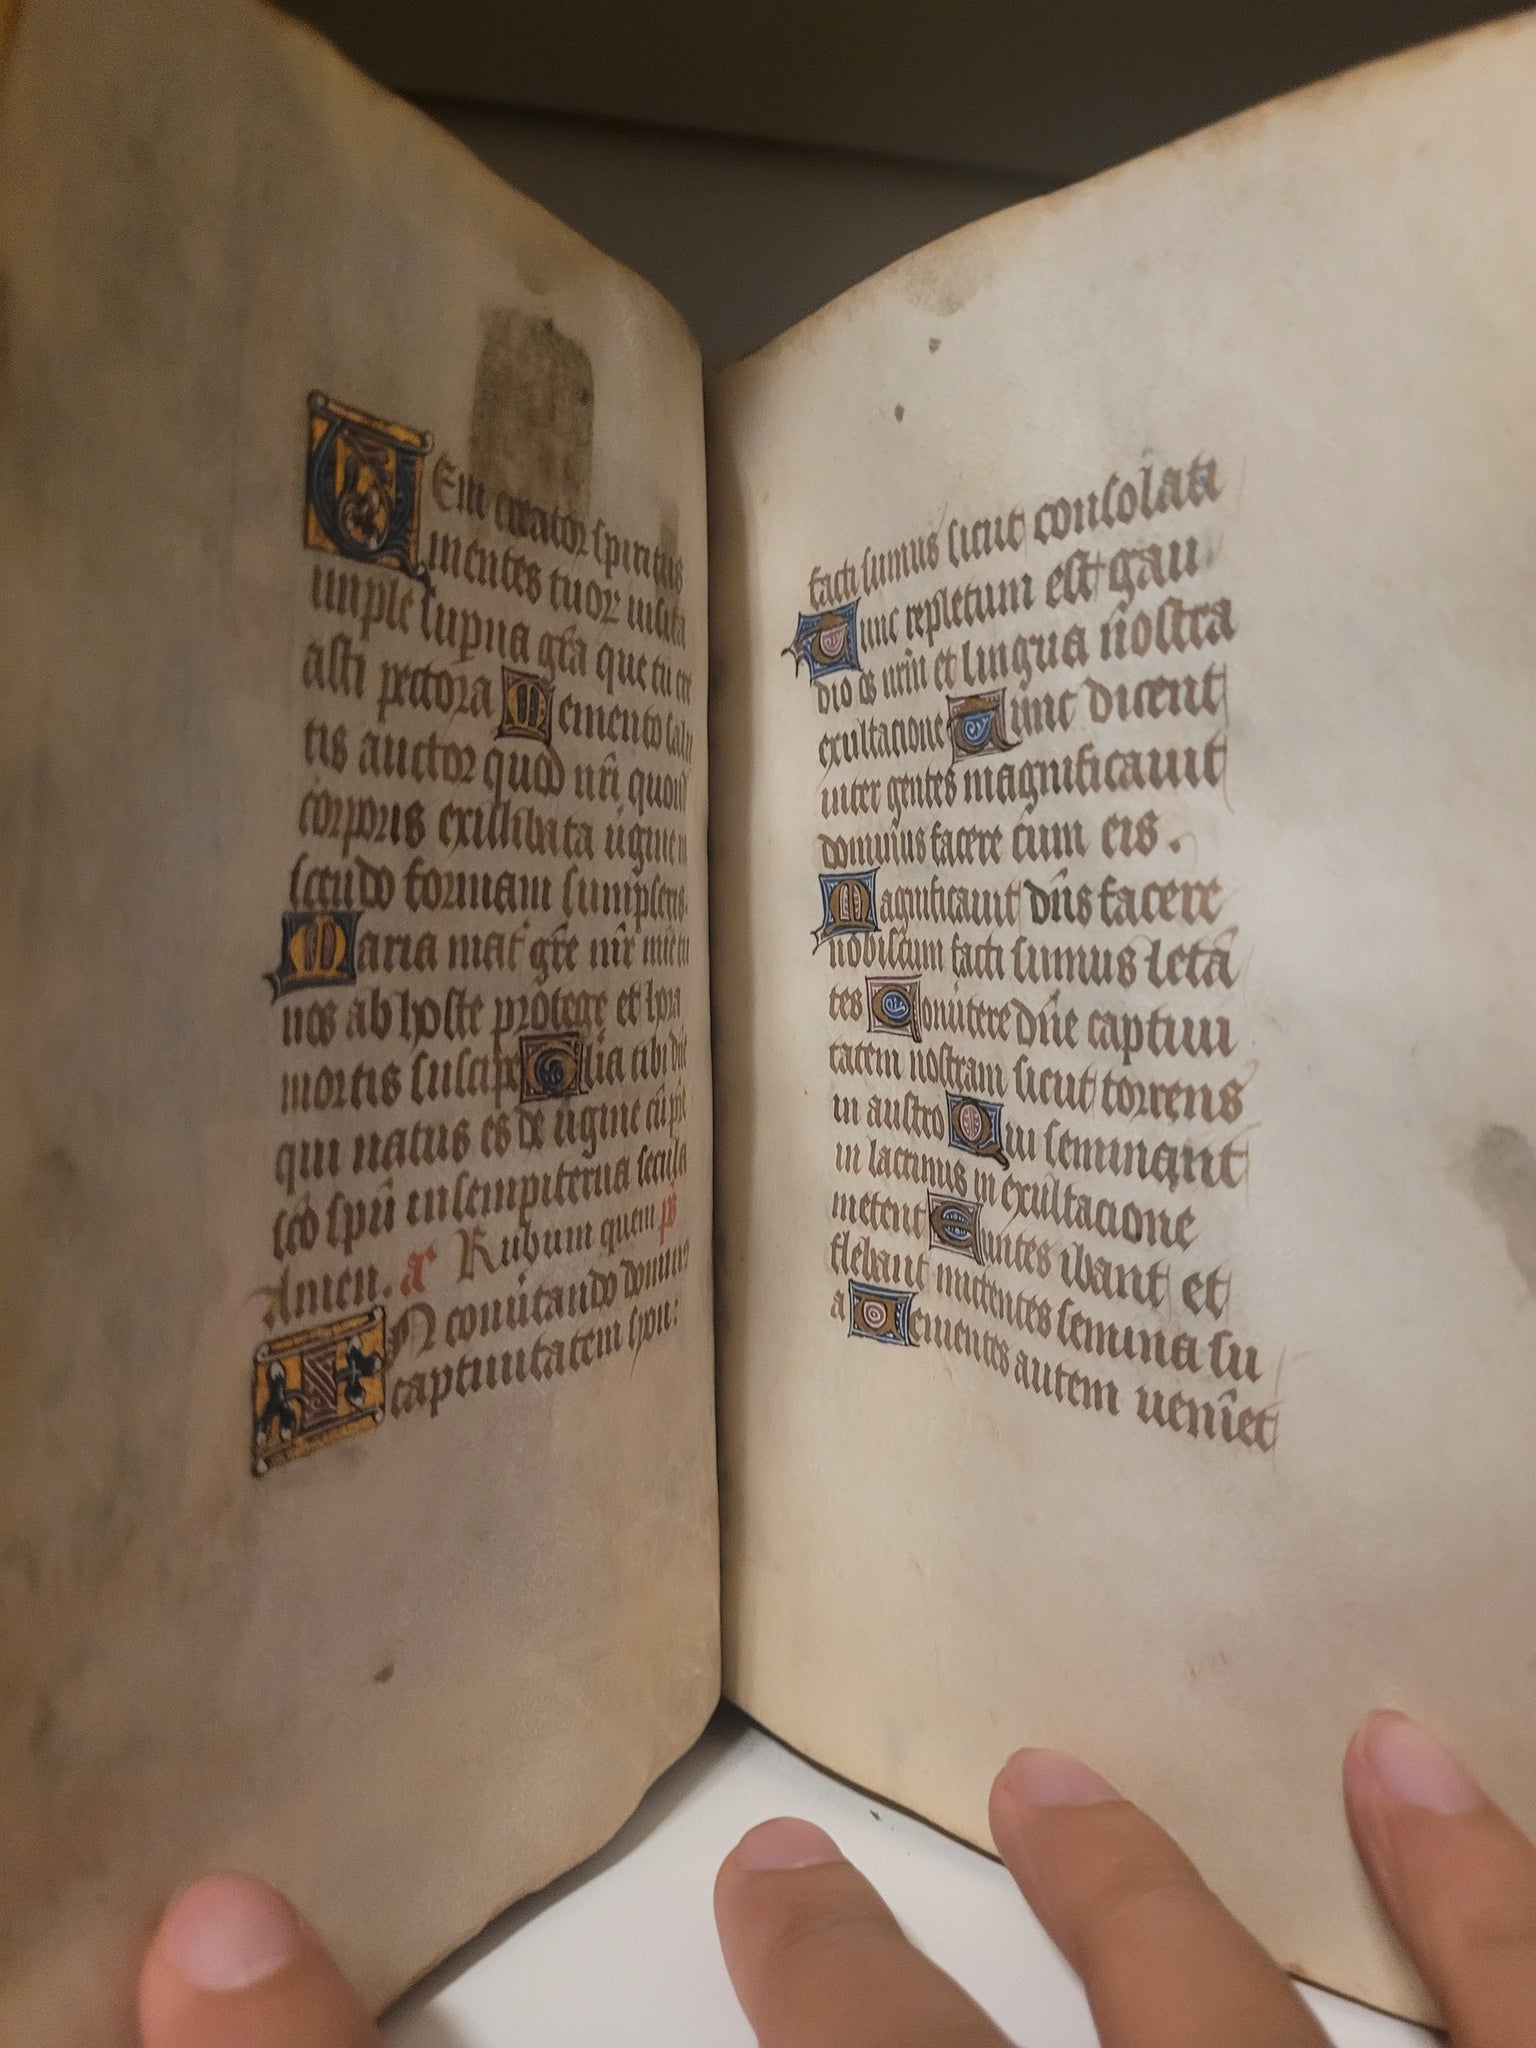 Eni creator spiritus
mentes tuor visita
imple superna gra que tu cre
asti pectora Memento salu
tis auctor quod nri quond
corporis exillibata virgine n
scendo formam sumpseris.
Maria mat gre mr mie tu
nos ab hoste protege et hora
mortis suscipe Glia tibi dne
qui natus es de virgine cu pre
sco spu in sempiterna secula
Amen. a Rubum quem ps
IN convertendo dominus
captivitatem syon:
facti sumus sicut consolati
Tunc repletum est gau
dio os nrm et lingua nostra
exultacione Tunc dicent
inter gentes magnificauit
dominus facere cum eis.
Magnificauit dns facere
nobiscum facti sumus letan
tes Conuertere dne captiui
tatem nostram sicut torrens
in austro Qui seminant
in lacrimis in exultacione
metent Euntes ibant et
flebant mittentes semina su
a Uenientes autem uenient